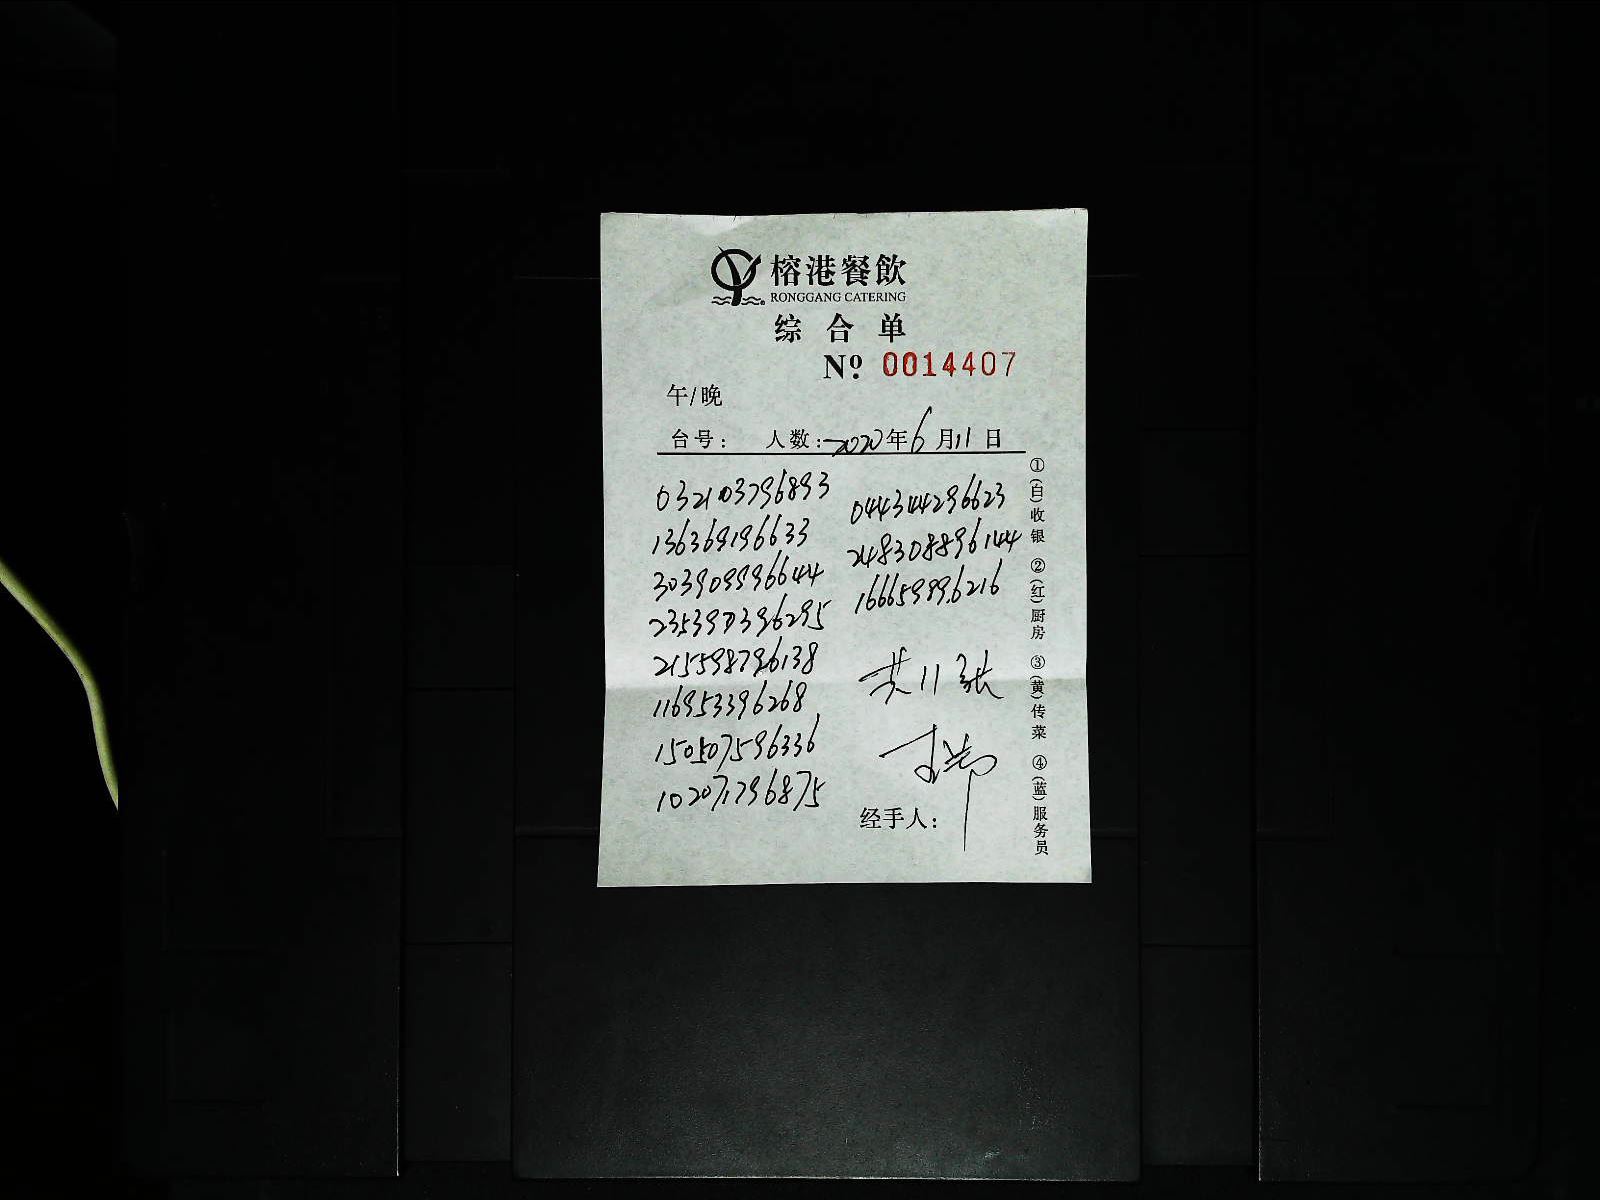 榕港餐飲
RONGGANG CATERING
综合单
Nº 0014407
午/晚
台号: 人数: 2020年6月11日
032103796893
136369196633
303909996644
235397396295
215598796138
116953396268
150507596336
102071796875
044344296623
248308896144
166659896216
共11张
经手人:
①(自)收银 ②(红)厨房 ③(黄)传菜 ④(蓝)服务员